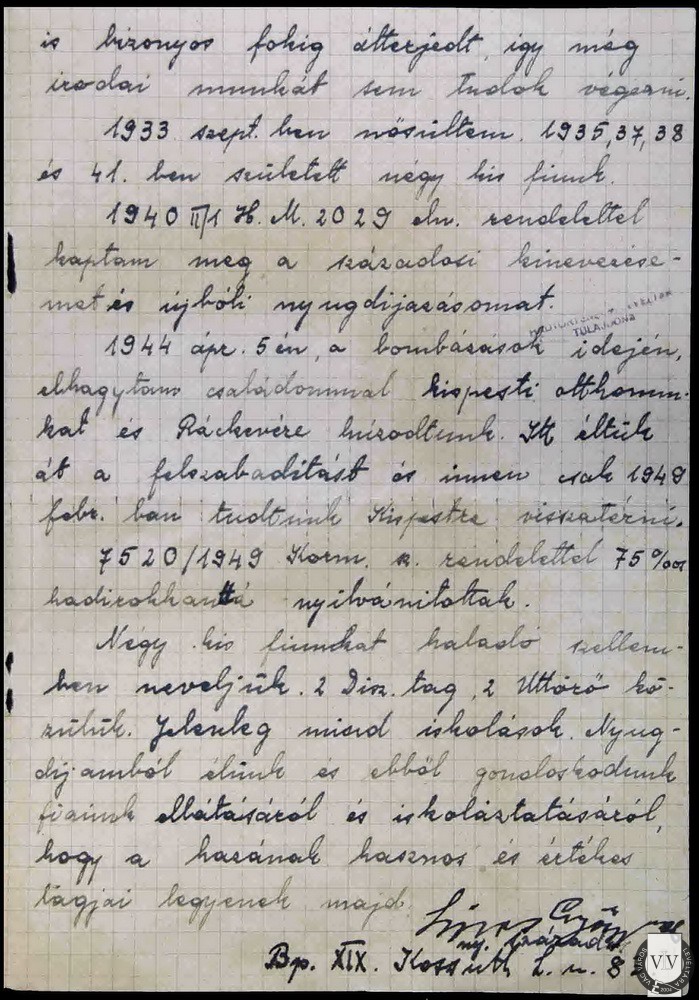 is bizonyos fokig átterjedt, igy még
irodai munkát sem tudok végezni.
1933 szept. ben nősültem. 1935, 37, 38
és 41. ben született négy kis fiunk.
1940 II/1 H. M. 2029 eln. rendelettel
kaptam meg a századosi kinevezése-
met és újbóli nyugdijazásomat.
TULAJDONA
1944 ápr. 5 én, a bombázások idején,
elhagytam családommal kispesti otthonun-
kat és Ráckevére húzodtunk. Itt éltük
át a felszabadítást és innen csak 1949
febr. ban tudtunk Kispestre visszatérni.
7520/1949 Korm. sz. rendelettel 75%os
hadirokkanttá nyilvánitottak.
Négy kis fiunkat haladó szellem-
ben neveljük. 2 Disz. tag, 2 Úttörő kö-
zülük. Jelenleg mind iskolások. Nyug-
dijamból élünk és ebből gondoskodunk
fiaink ellátásáról és iskoláztatásáról,
hogy a hazának hasznos és értékes
tagjai legyenek majd.
ny. százados
Bp. XIX. Kossuth L. u. 8
VV